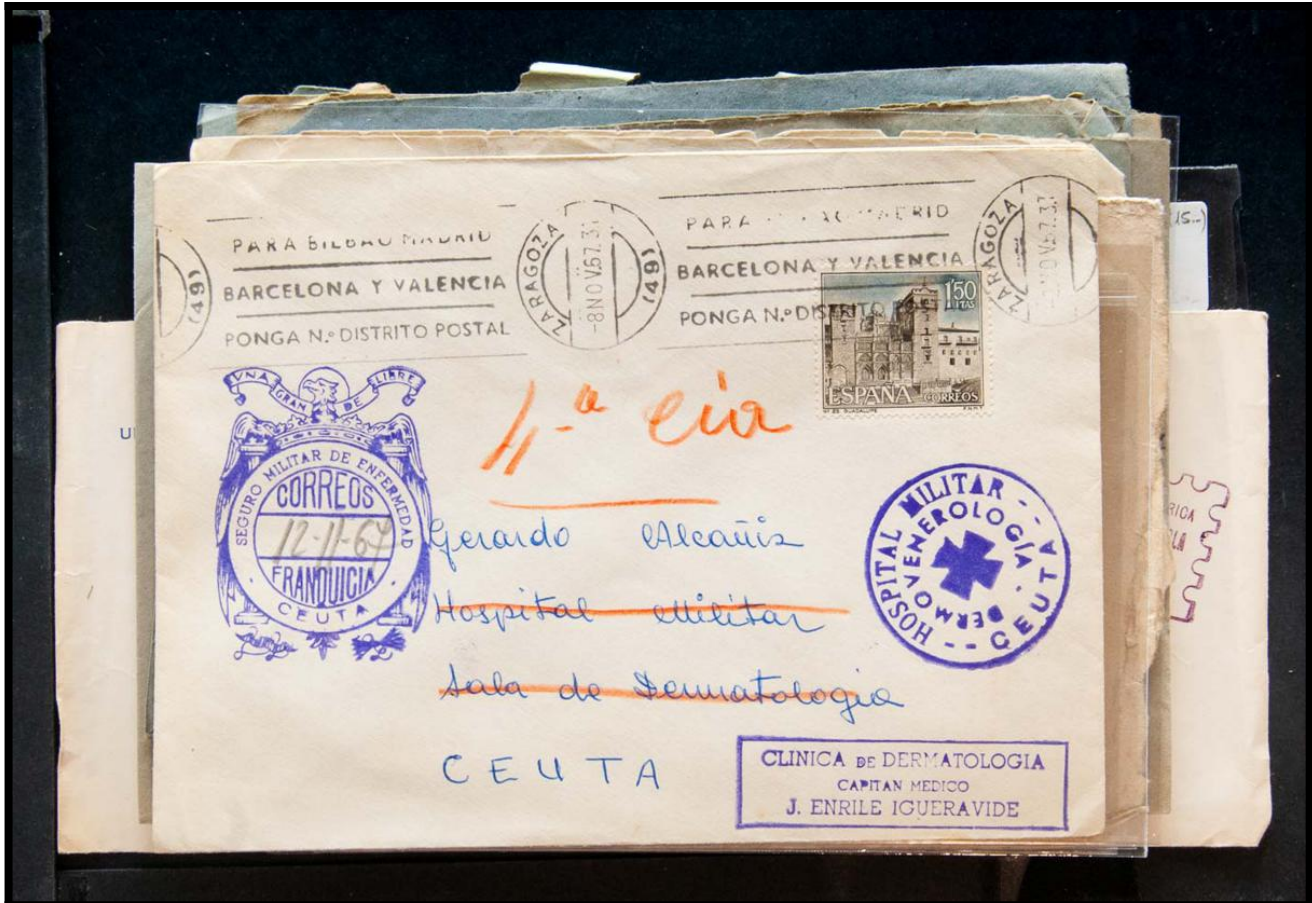 PARA BILBAO MADRID
BARCELONA Y VALENCIA
PONGA N.º DISTRITO POSTAL
(49)
ZARAGOZA
-8 NOV.67.3
(49)
PARA MADRID
BARCELONA Y VALENCIA
PONGA N.º DISTRITO
ZARAGOZA
NOV.67.3
1'50
PTAS
ESPAÑA CORREOS
GUADALUPE
F.N.M.T.
15--)
4ª cia
VNA GRANDE LIBRE
SEGURO MILITAR DE ENFERMEDAD
CORREOS
12-11-67
FRANQUICIA
CEUTA
U
Gerardo Alcañiz
Hospital Militar
Sala de Dermatologia
CEUTA
HOSPITAL MILITAR -- CEUTA --
DERMOVENEROLOGÍA
RICA
CLINICA DE DERMATOLOGIA
CAPITAN MEDICO
J. ENRILE IGUERAVIDE